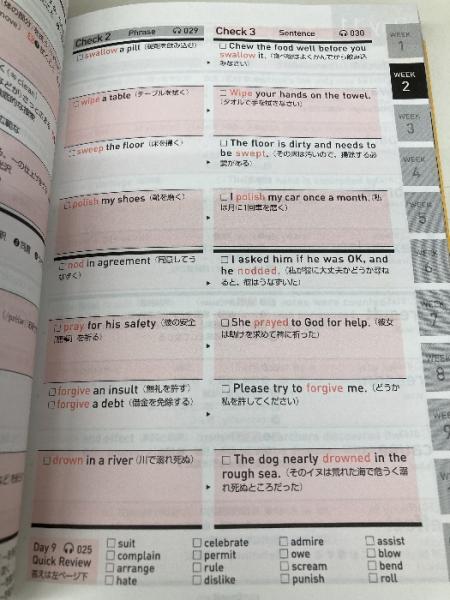 Check 2 Phrase 🎧 029
□ swallow a pill（錠剤を飲み込む）
□ wipe a table（テーブルを拭く）
□ sweep the floor（床を掃く）
□ polish my shoes（靴を磨く）
□ nod in agreement（同意してう
なずく）
□ pray for his safety（彼の安全
を祈る）
□ forgive an insult（無礼を許す）
□ forgive a debt（借金を免除する）
□ drown in a river（川で溺れ死ぬ）
Check 3 Sentence 🎧 030
□ Chew the food well before you
swallow it.（食べ物はよくかんでから飲み込
みなさい）
□ Wipe your hands on the towel.
（タオルで手を拭きなさい）
□ The floor is dirty and needs to
be swept.（その床は汚いので、掃除する必
要がある）
□ I polish my car once a month.（私
は月に1回車を磨く）
□ I asked him if he was OK, and
he nodded.（私が彼に大丈夫かどうか尋ね
ると、彼はうなずいた）
□ She prayed to God for help.（彼女
は助けを求めて神に祈った）
□ Please try to forgive me.（どうか
私を許してください）
□ The dog nearly drowned in the
rough sea.（そのイヌは荒れた海で危うく溺
れ死ぬところだった）
WEEK
1
WEEK
2
3
4
5
6
7
8
9
Day 9 🎧 025
Quick Review
答えは左ページ下
□ suit
□ complain
□ arrange
□ hate
□ celebrate
□ permit
□ rule
□ dislike
□ admire
□ owe
□ scream
□ punish
□ assist
□ blow
□ bend
□ roll